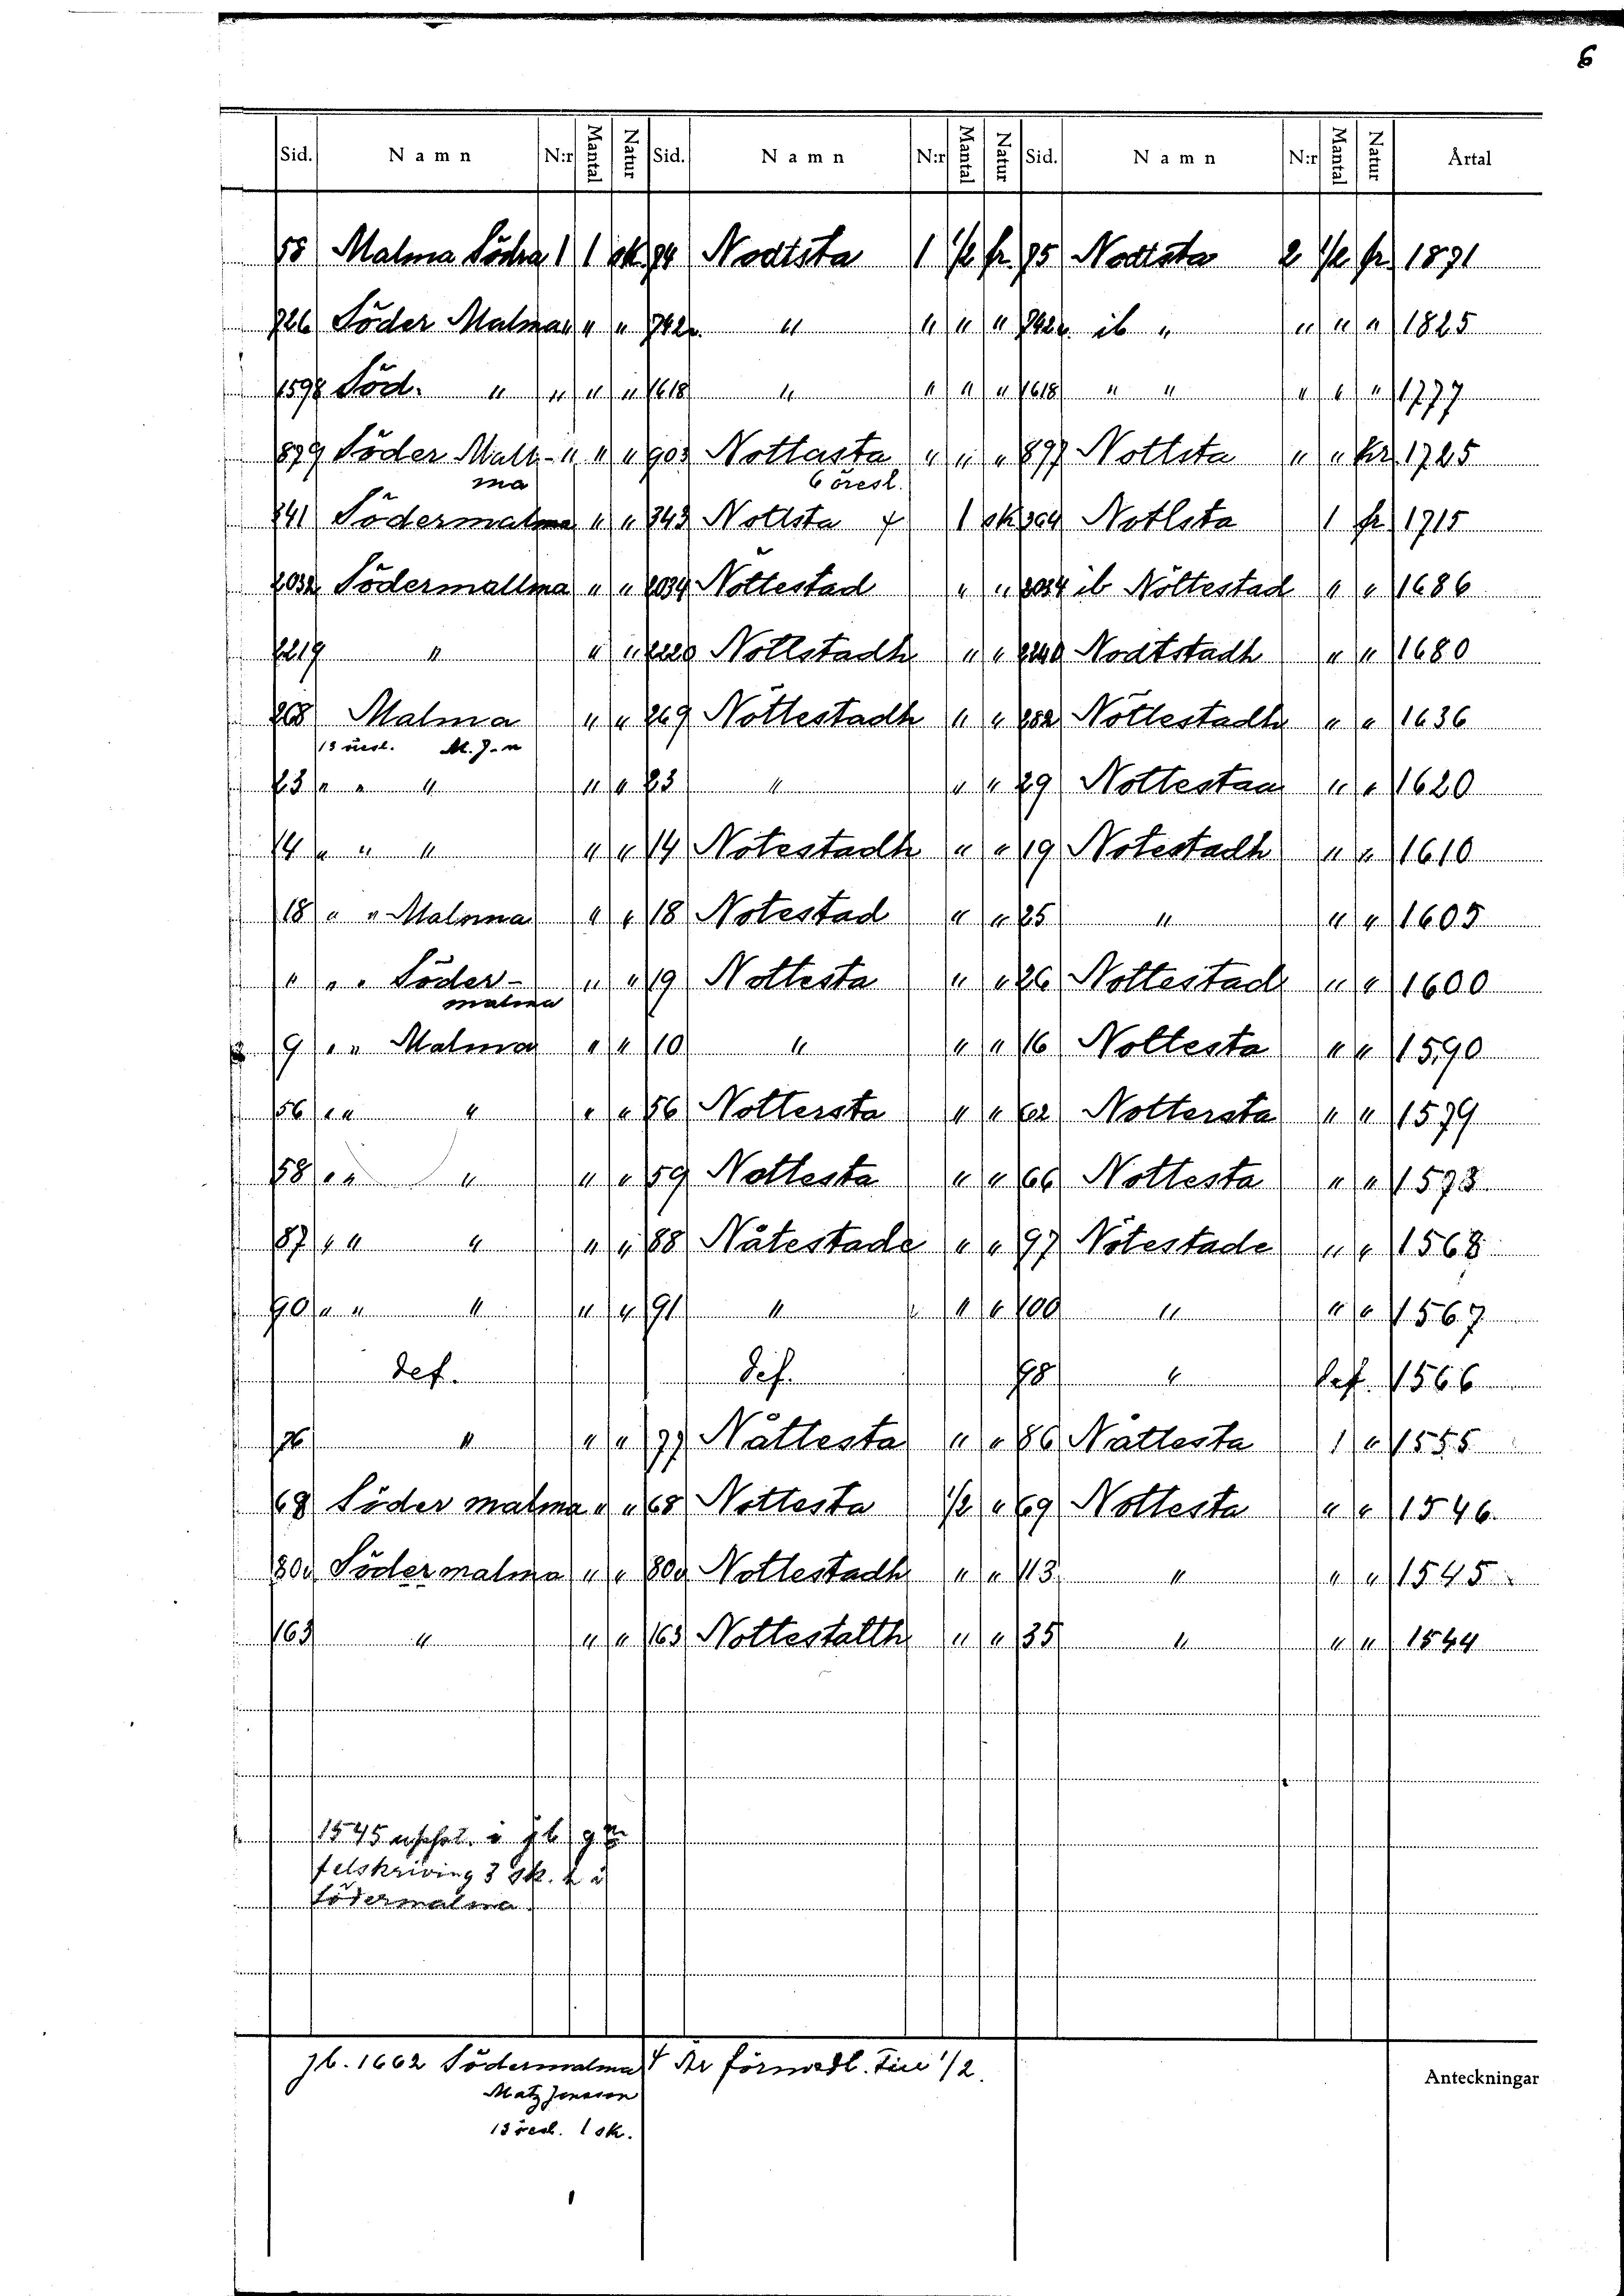 6
Sid. Namn N:r Mantal Natur Sid. Namn N:r Mantal Natur Sid. Namn N:r Mantal Natur Årtal
55 Malma Södra 1 1 sk. 74 Nodtsta 1 1/2 fr. 75 Nodtsta 2 1/2 fr. 1871
726 Söder Malma " " " 742 " " " " 742 ib " " " " 1825
1598 Söd. " " " " 1618 " " " " 1618 " " " " " 1777
879 Söder Mall- " " " 903 Nottasta " " " 897 Nottsta " " kr. 1725
ma 6 öresl.
841 Södermalma " " 843 Nottsta 1 sk Nottsta 1 fr. 1715
2032 Södermallma " " 2034 Nöttestad " " 2034 ib Nöttestad " " 1686
2219 " " " 2220 Nottstadh " " 2240 Nodtstadh " " 1680
268 Malma " " 269 Nöttestadh " " 252 Nöttestadh " " 1636
13 öresl. M. J-n
23 " " " " " 23 " " " 29 Nottestaa " " 1620
14 " " " " " 14 Notestadh " " 19 Notestadh " " 1610
18 " " Malma " " 18 Notestad " " 25 " " " 1605
" " " Söder- " " 19 Nottesta " " 26 Nottestad " " 1600
malma
9 " " Malma " " 10 " " " 16 Nottesta " " 1590
56 " " " " " 56 Nottersta " " 62 Nottersta " " 1579
58 " " " " " 59 Nottesta " " 66 Nottesta " " 1573
87 " " " " " 88 Nåtestade " " 97 Nötestade " " 1568
90 " " " " " 91 " " " 100 " " " 1567
def. def. 98 " def. 1566
76 " " " 77 Nåttesta " " 86 Nåttesta 1 " 1555
68 Söder malma " " 68 Nottesta 1/2 " 69 Nottesta " " 1546
80v Södermalma " " 80v Nottestadh " " 113 " " " 1545
163 " " " 163 Nottestalth " " 35 " " " 1544
1545 i jb g m
felskriving 3 sk. h i
Södermalma
jb. 1662 Södermalma Är förmedl. till 1/2.
Matz Jonsson
13 öresl. 1 sk.
Anteckningar